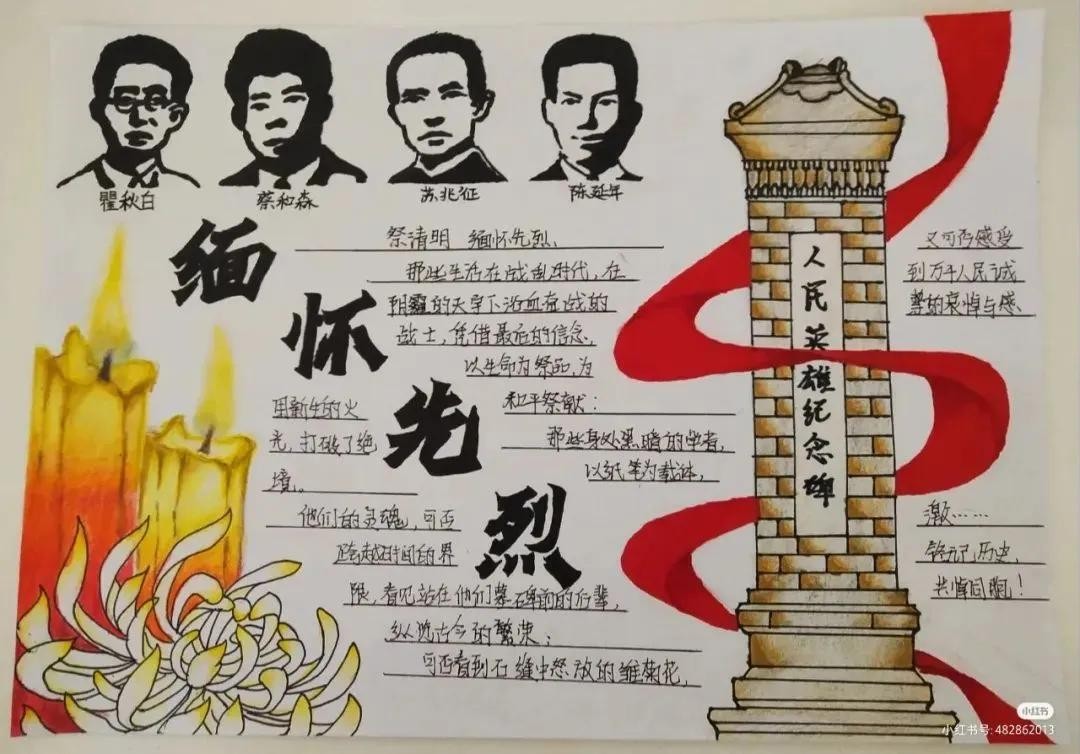 瞿秋白
蔡和森
苏兆征
陈延年
缅怀先烈
祭清明 缅怀先烈、
那些生活在战乱时代，在
阴霾的天宇下浴血奋战的
战士，凭借最后的信念，
以生命为祭品，为
和平祭献：
那些身处黑暗的学者，
以纸笔为载体，
用新生的火
光，打破了绝
境。
他们的灵魂，可否
跨越时间的界
限，看见站在他们墓碑前的后辈，
纵览古今的繁荣；
可否看到石缝中怒放的雏菊花，
又可否感受
到万千人民诚
挚的哀悼与感
激……
铭记历史，
共悼同胞！
人民英雄纪念碑
小红书
小红书号: 482862013